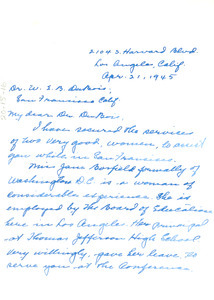 2104 S. Harvard Blvd.
Los Angeles, Calif.
Apr. 21, 1945
Dr. W. E. B. DuBois,
San Francisco Calif
My dear Dr. DuBois,
I have secured the services
of two very good, women, to assist
you while in San Francisco.
Miss Jane formally of
Washington D.C. is a woman of
considerable experience. She is
employed by the Board of Education
here in Los Angeles. Her principal
at Thomas Jefferson High School
very willingly, gave her leave to
serve you, at the Conference